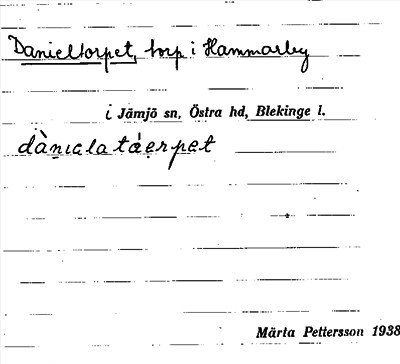 Danieltorpet, torp i Hammarby
i Jämjö sn, Östra hd, Blekinge l.
dànıalatáerpet
Märta Pettersson 1938